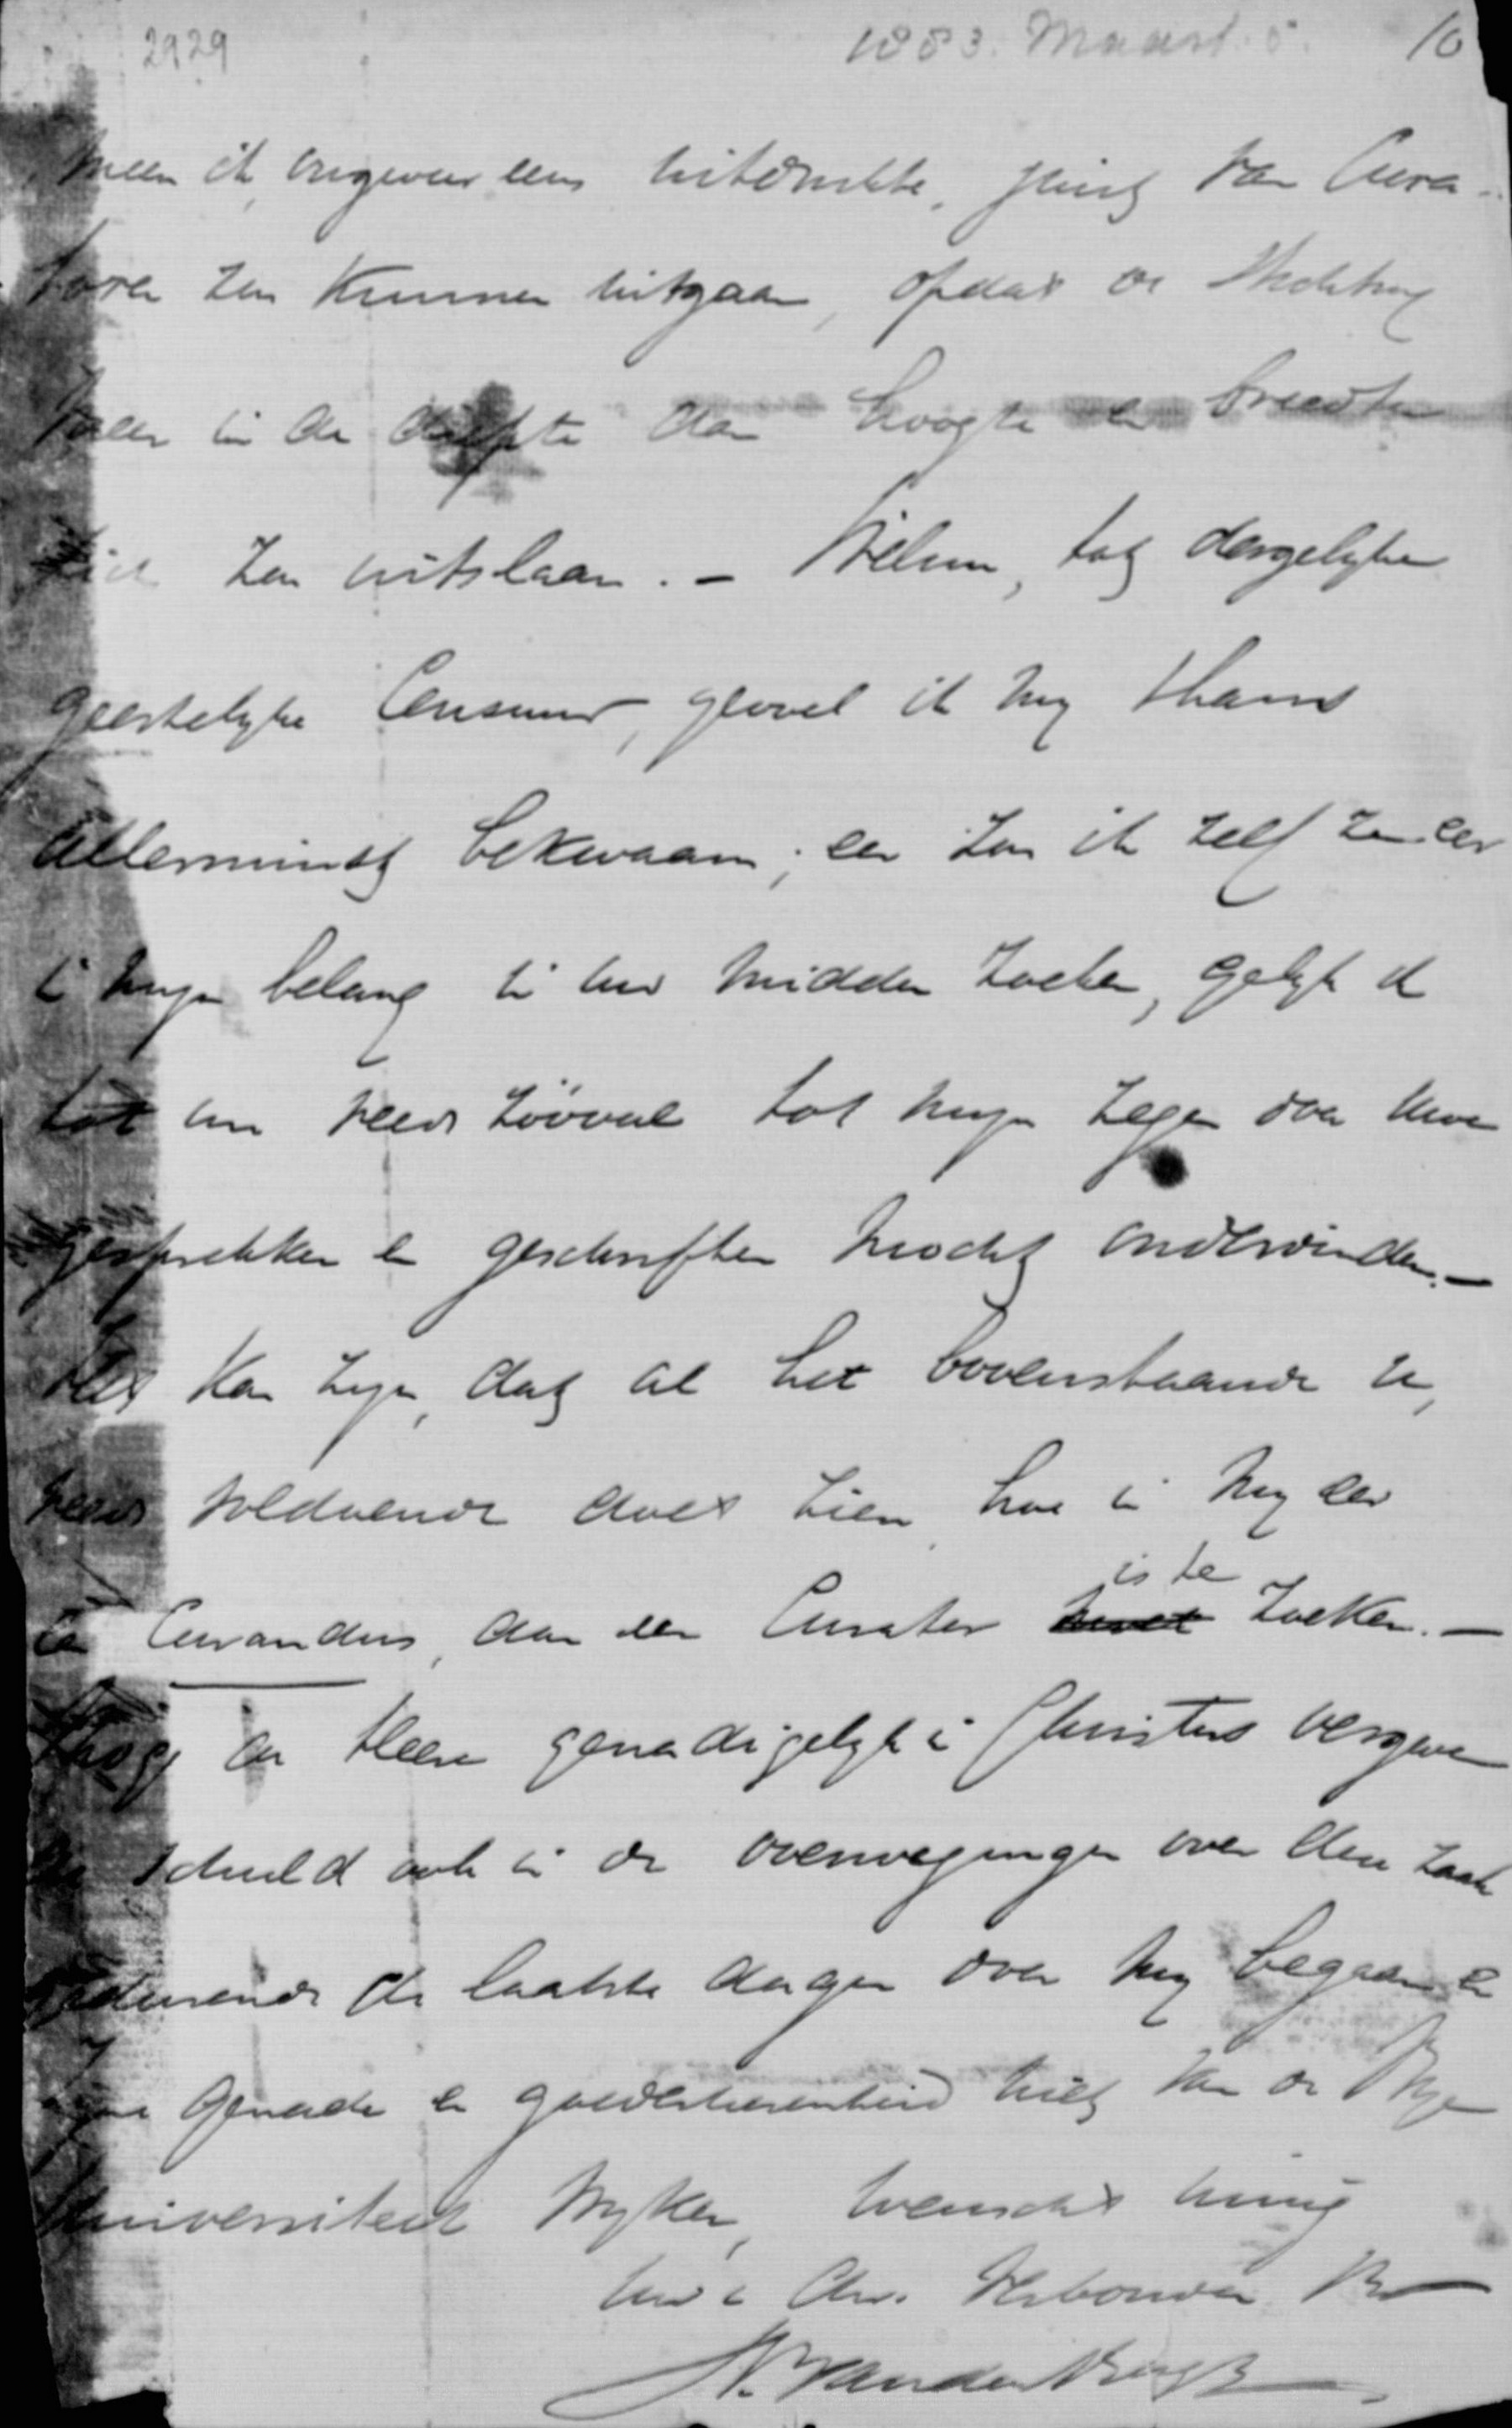 2929 1883. Maart. 5. 10
meen ik, ongeveer eens uitdrukte, juist van Cura-
toren zou kunnen uitgaan, opdat de Stichting
meer in de diepte dan hoogte en breedte
zou uitslaan. - Welnu, tot dergelijke
geestelyke Censuur, gevoel ik my thans
allerminst bekwaam; en zou ik zelf ze eer
in myn belang in uw midden zoeken, gelyk ik
tot nu reeds zooveel tot myn zegen door uwe
gesprekken en geschriften mocht ondervinden. -
Het kan zyn, dat al het bovenstaande u,
reeds voldoende doet zien, hoe in my eer
een Curandus, dan een Curator is te zoeken. -
Moge de Heere genadiglyk in Christus vergeven
de schuld ook in de overwegingen over deze zaak
gedurende de laatste dagen door my begaan en
zyne genade en goedertierenheid niet van de Vrye
Universiteit wyken, wenscht innig
uw in Chr. Verbonden Br